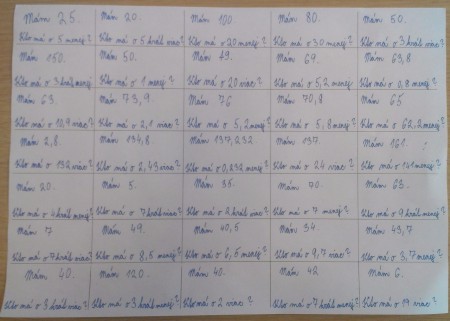 Mám 25.
Kto má o 5 menej?
Mám 20.
Kto má o 5 krát viac?
Mám 100
Kto má o 20 menej?
Mám 80.
Kto má o 30 menej?
Mám 50.
Kto má o 3 krát viac?
Mám 150.
Kto má o 3 krát menej
Mám 50.
Kto má o 1 menej?
Mám 49.
Kto má o 20 viac?
Mám 69.
Kto má o 5,2 menej
Mám 63,8
Kto má o 0,8 menej?
Mám 63.
Kto má o 10,9 viac?
Mám 73,9
Kto má o 2,1 viac?
Mám 76
Kto má o 5,2 menej?
Mám 70,8
Kto má o 5,8 menej?
Mám 65
Kto má o 62,2 menej?
Mám 2,8.
Kto má o 132 viac?
Mám 134,8
Kto má o 2,43 viac?
Mám 137,232
Kto má o 0,232 menej?
Mám 137.
Kto má o 24 viac?
Mám 161.
Kto má o 141 menej?
Mám 20.
Kto má o 4 krát menej?
Mám 5.
Kto má o 7 krát viac?
Mám 35.
Kto má o 2 krát viac?
Mám 70.
Kto má o 7 menej?
Mám 63.
Kto má o 9 krát menej?
Mám 7
Kto má o 7 krát viac?
Mám 49.
Kto má o 8,5 menej?
Mám 40,5
Kto má o 6,5 menej?
Mám 34.
Kto má o 9,7 viac?
Mám 43,7
Kto má o 3,7 menej?
Mám 40.
Kto má o 3 krát viac?
Mám 120.
Kto má o 3 krát menej?
Mám 40.
Kto má o 2 viac?
Mám 42
Kto má o 7 krát menej?
Mám 6.
Kto má o 19 viac?